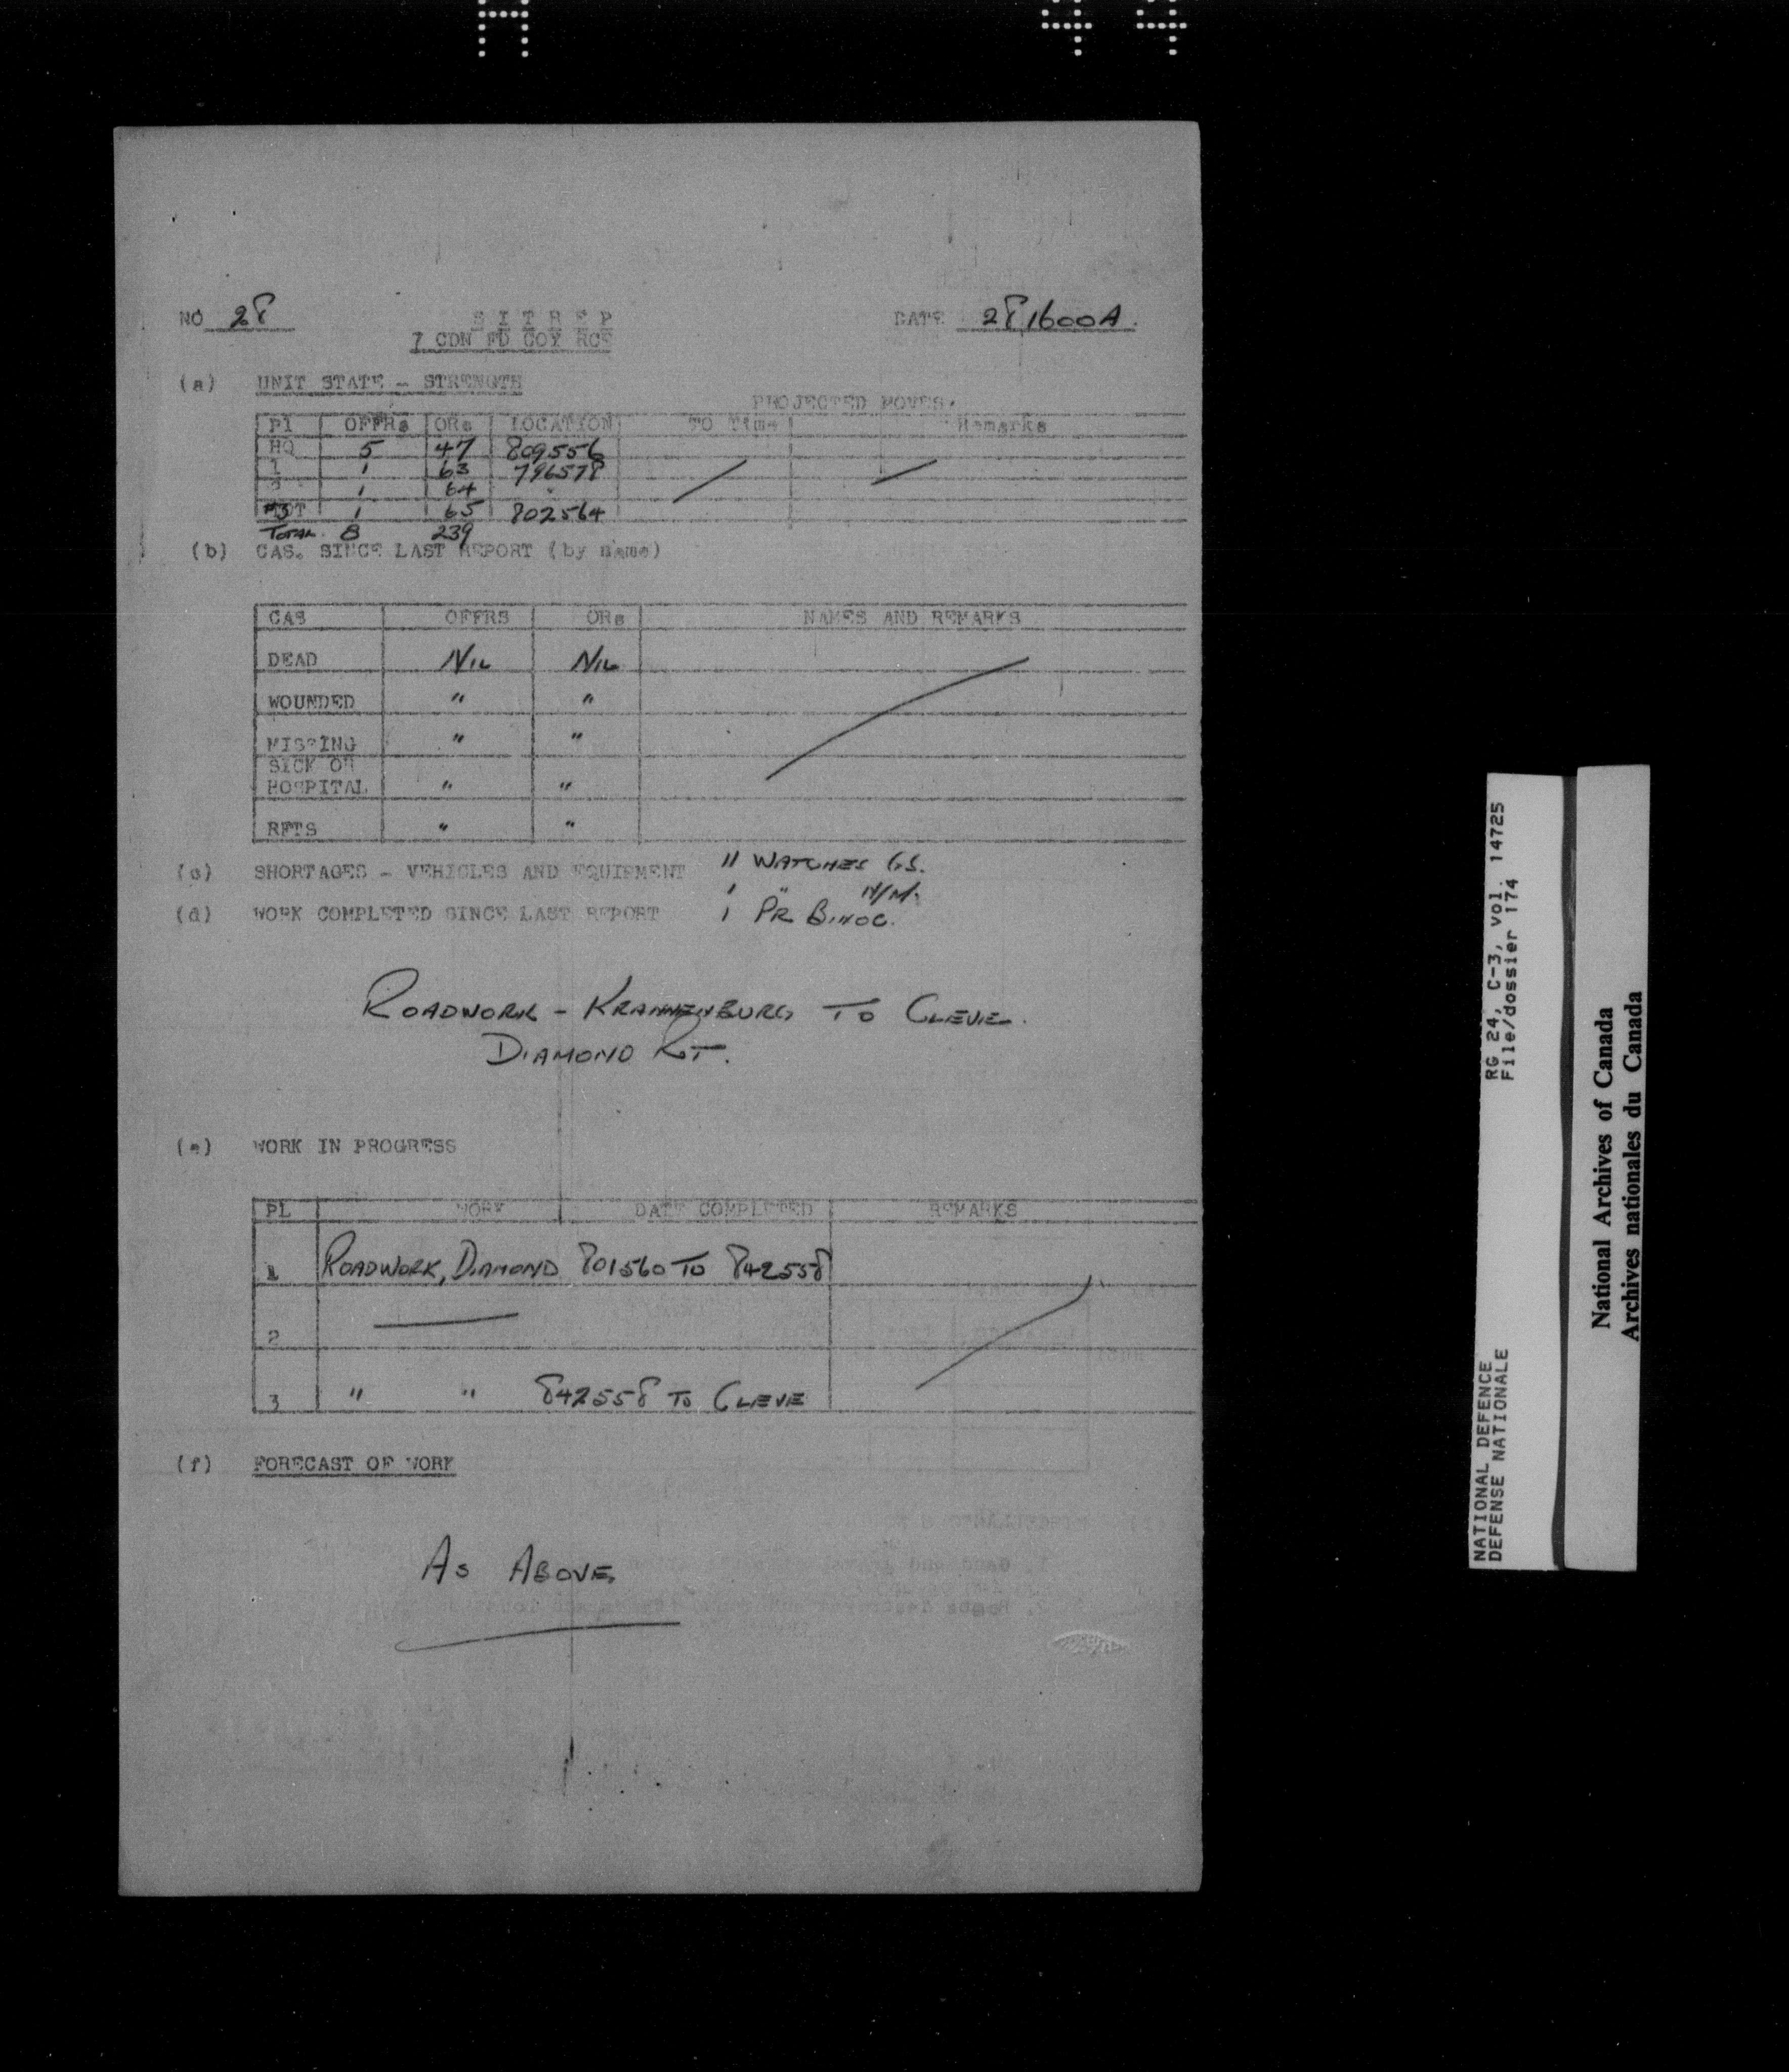 H 44
NO 28 SITREP DATE 281600A.
7 CDN FD COY RCE
(a) UNIT STATE - STRENGTH
PROJECTED MOVES.
Pl OFFRs ORs LOCATION TO Time Remarks
HQ 5 47 809556
1 1 63 796578
2 1 64 "
#3 1 65 802564
TOTAL 8 239
(b) CAS. SINCE LAST REPORT (by name)
CAS OFFRS ORs NAMES AND REMARKS
DEAD NIL NIL
WOUNDED " "
MISSING " "
SICK OR
HOSPITAL " "
RFTS " "
(c) SHORTAGES - VEHICLES AND EQUIPMENT 11 WATCHES G.S.
1 "
(d) WORK COMPLETED SINCE LAST REPORT 1 PR BINOC.
ROADWORK - KRANNENBURG TO CLEVE.
DIAMOND RT.
(e) WORK IN PROGRESS
PL WORK DATE COMPLETED REMARKS
1 ROADWORK, DIAMOND 801560 TO 842558
2
3 " " 842558 TO CLEVE
(f) FORECAST OF WORK
AS ABOVE
NATIONAL DEFENCE RG 24, C-3, vol. 14725
DEFENSE NATIONALE File/dossier 174
National Archives of Canada
Archives nationales du Canada